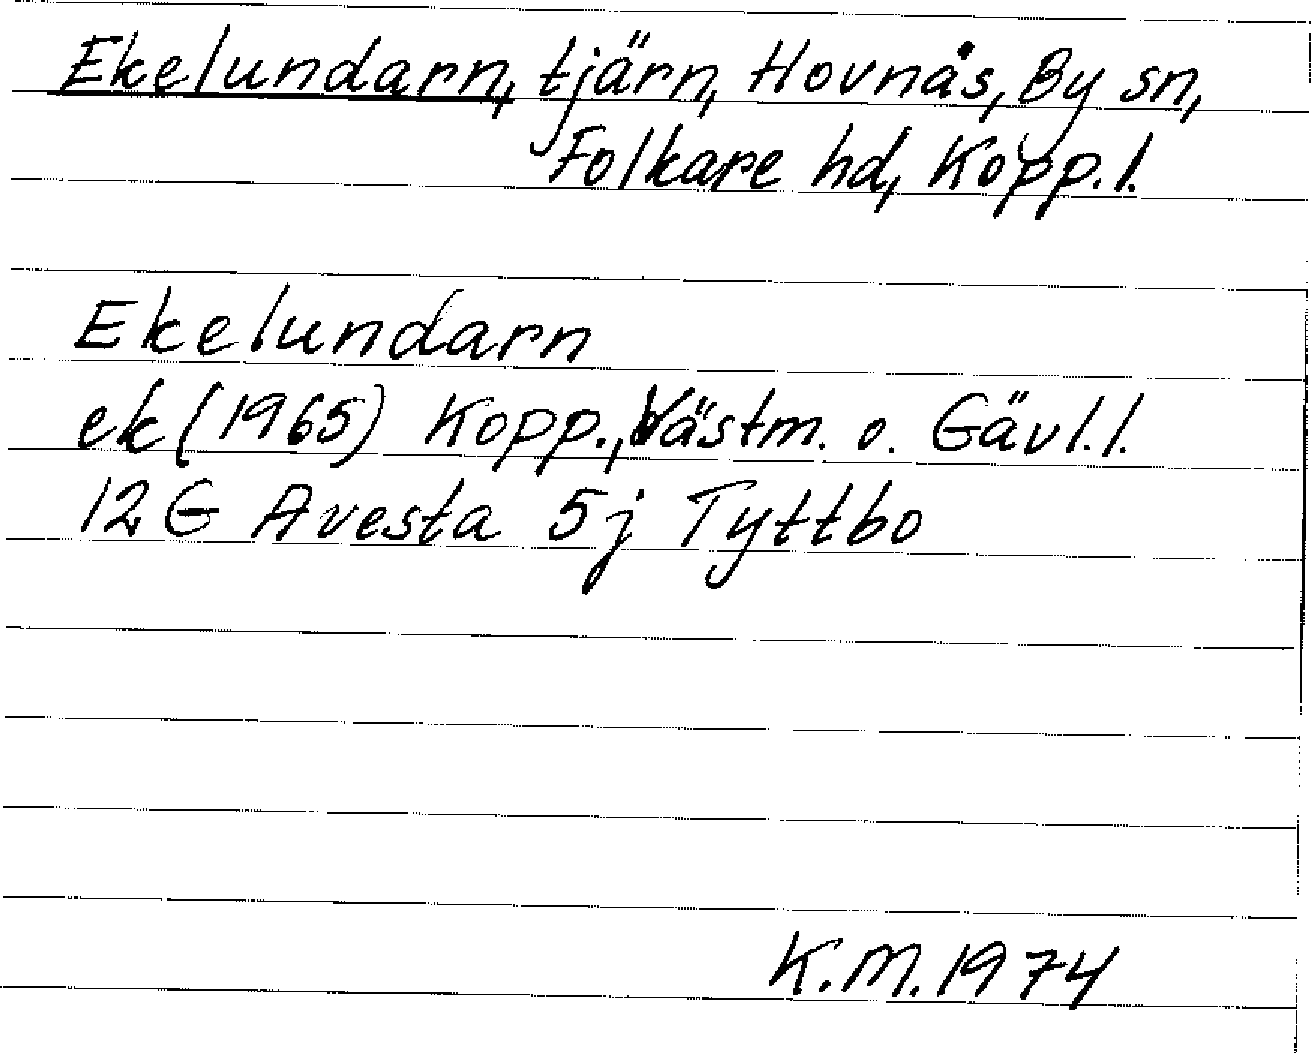 Ekelundarn, tjärn, Hovnäs, By sn,
Folkare hd, Kopp.l.
Ekelundarn
ek (1965) Kopp., Västm. o. Gävl.l.
12 G Avesta 5j Tyttbo
K.M. 1974